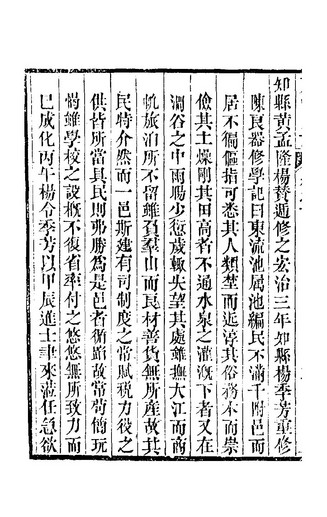 知縣黃孟隆楊贊遞修之宏治三年知縣楊季芳重修
陳良器修學記曰東流池属池編民不滿千附邑而
居不徧傴指可悉其人類埜而近淳其俗務本而崇
儉其土燥剛其田高者不通水泉之灌溉下者又在
澗谷之中雨暘少愆歲輙失望其處雖撫大江而商
帆旅泊所不留雖負羣山而良材善貨無所産故其
民特介然而一邑斯建有司制度之常賦稅力役之
供皆所當具民則那勝為是邑者循踏故常苟簡玩
愒雖學校之設概不復省率付之悠悠無所致力而
巳成化丙午楊令季芳以甲辰進士聿來蒞任急欲